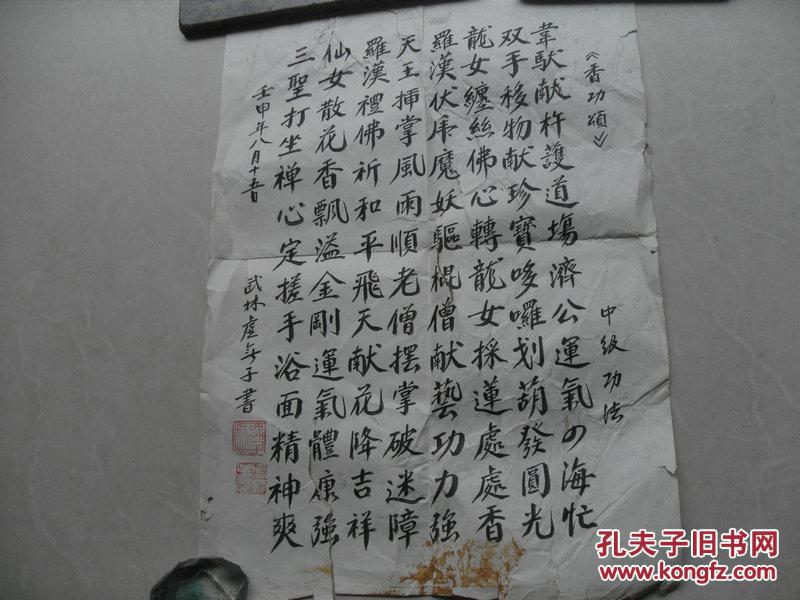 《香功頌》
中級功法
韋馱献杵護道場濟公運氣四海忙
双手移物献珍寶哆囉划葫發圓光
龍女纏絲佛心轉龍女採蓮處處香
羅漢伏虎魔妖驅棍僧献藝功力強
天王揷掌風雨順老僧摆掌破迷障
羅漢禮佛祈和平飛天献花降吉祥
仙女散花香飄溢金剛運氣體康強
三聖打坐禅心定搓手浴面精神爽
壬申年八月十五日
武林虛無子書
孔夫子旧书网
www.kongfz.com